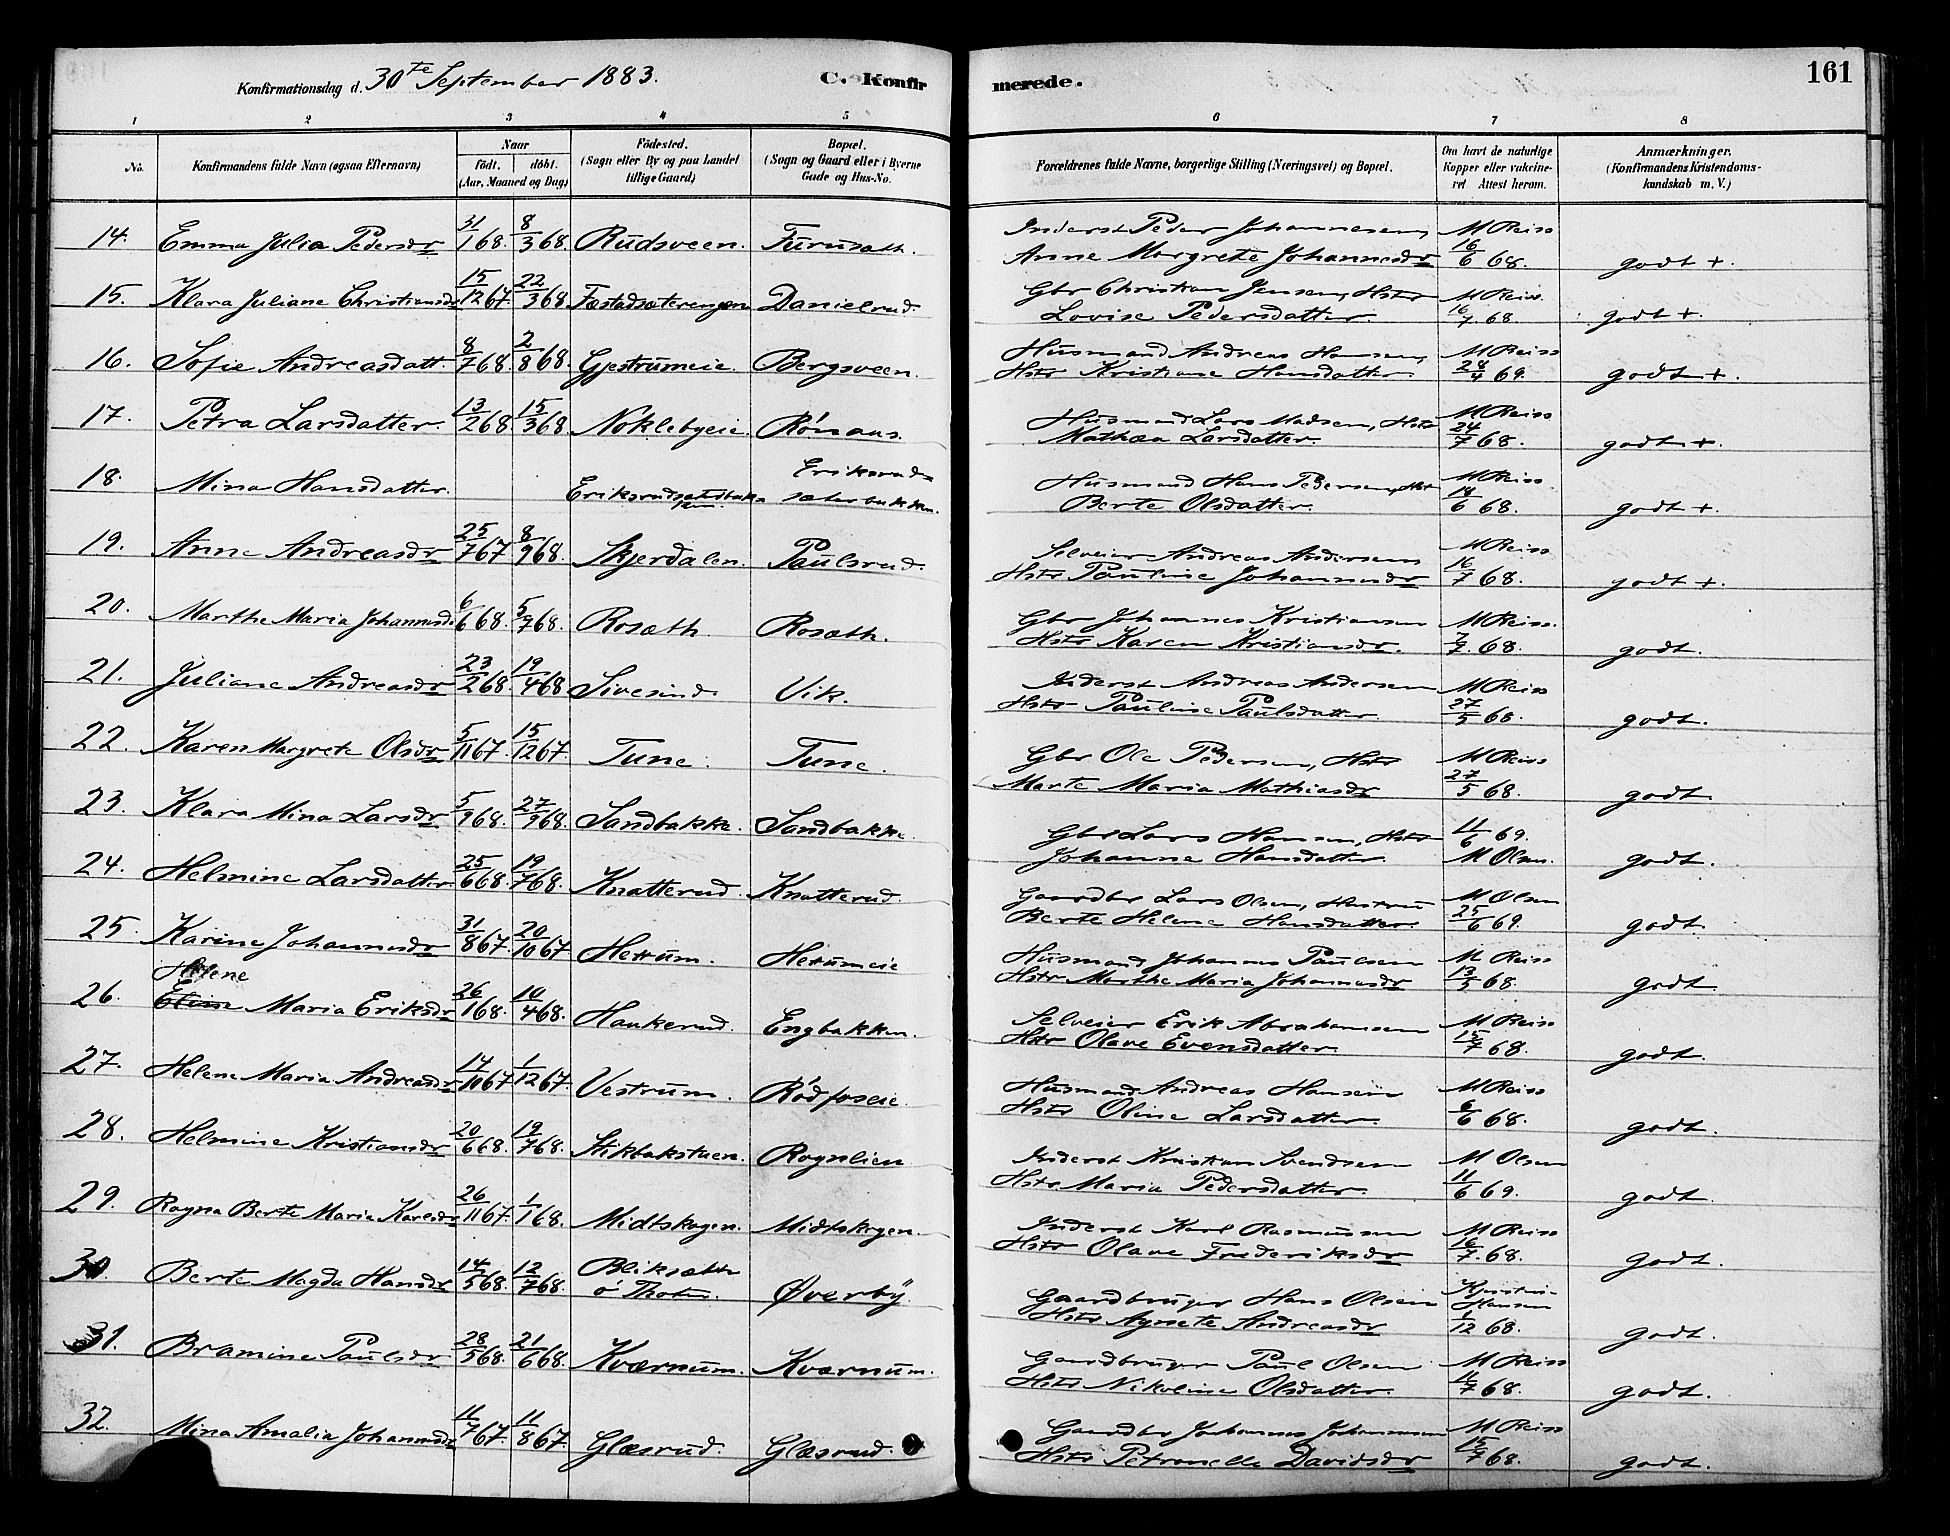 Konfirmationsdag d. 30te September 1883.
C. Konfirmerede.
161
1 2 3 4 5 6 7 8
No.
Konfirmandens fulde Navn (ogsaa Efternavn)
Naar
födt. döbt.
(Aar, Maaned og Dag)
Födested.
(Sogn eller By og paa Landet
tillige Gaard)
Bopæl.
(Sogn og Gaard eller i Byerne
Gade og Hus-No.
Forældrenes fulde Navne, borgerlige Stilling (Næringsvei) og Bopæl.
Om havt de naturlige
Kopper eller vakcine-
ret Attest herom.
Anmærkninger.
(Konfirmandens Kristendoms-
kundskab m. V.)
14. Emma Julia Pedersdr 31/1 68. 8/3 68. Rudsveen. Furusæth. Inderst Peder Johannesen, M Reiss
Anne Margrete Johannesdr 16/6 68. godt +.
15. Klara Juliane Christiansdr 15/12 67. 22/3 68 Danielrud. Gbr Christian Jensen, Hstr M Reiss.
Lovise Pedersdatter. 16/7 68. godt +.
16. Sofie Andreasdatt. 8/7 68. 2/8 68. Gjestrumeie. Bergsveen. Husmand Andreas Hansen, M Reiss
Hstr Kristiane Hansdatter 28/4 69. godt +.
17. Petra Larsdatter. 13/2 68. 15/3 68. Noklebyeie. Husmand Lars Madsen, Hstr M Reiss
Mathea Larsdatter. 24/7 68. godt +.
18. Mina Hansdatter. Eriksrud
sæterbakken. Husmand Hans Pedersen, Hstr M Reiss
Berte Olsdatter. 18/6 68. godt +.
19. Anne Andreasdr 25/7 67 8/9 68. Skjerdalen. Paulsrud. Selveier Andreas Andersen M Reiss
Hstr Pauline Johannesdr 16/7 68. godt +.
20. Marthe Maria Johannesdr 6/6 68. 5/7 68. Rosæth. Rosæth. Gbr Johannes Kristiansen M Reiss.
Hstr Karen Kristiansdr. 7/7 68. godt.
21. Juliane Andreasdr 23/2 68. 19/4 68 Sivesind Vik. Inderst Andreas Andersen M Reiss
Hstr Pauline Paulsdatter 27/5 68. godt.
22. Karen Margrete Olsdr 5/11 67. 15/12 67. Tune. Tune. Gbr Ole Pedersen, Hstr M Reiss
Marte Maria Mathiasdr 27/5 68. godt
23. Klara Mina Larsdr 5/9 68. 27/9 68. Sandbakke. Sandbakke. Gbr Lars Hansen, Hstr 11/6 69.
Johanna Hansdatter. M Olsen. godt.
24. Helmine Larsdatter 25/6 68. 19/7 68. Knatterud. Knatterud. Gaardbr Lars Olsen, Hustru M Olsen
Berte Helene Hansdatter. 25/6 69. godt.
25. Karine Johannesdr 31/8 67. 20/10 67 Hexum. Hexumeie Husmand Johannes Paulsen M Reiss
Hstr Marthe Maria Johannesdr 13/5 68. godt.
Helene
26. Maria Eriksdr 26/1 68. 10/4 68. Haukerud. Engbakken. Selveier Erik Abrahamsen M Reiss
Hstr Olave Evensdatter. 15/7 68. godt.
27. Helene Maria Andreasdr 17/10 67 1/12 67. Vestrum. Rødfoseie. Husmand Andreas Hansen M Reiss
Hstr Oline Larsdatter. 6/6 68. godt.
28. Helmine Kristiansdr 20/6 68. 19/7 68. Stikbakstuen. Rognlien Inderst Kristian Svendsen M Olsen
Hstr Maria Pedersdatter. 11/6 69. godt.
29. Ragna Berte Maria Karlsdr 26/11 67. 1/1 68. Midtskogen. Midtskogen. Inderst Karl Rasmussen M Reiss
Hstr Olave Frederiksdr 16/7 68. godt.
30. Berte Magda Hansdr 14/5 68. 12/7 68. Bliksæth
ø Thoten. Øverby. Gaardbruger Hans Olsen
Hstr Agnete Andreasdr Hansen 1/12 68. godt.
31. Bramine Paulsdr 28/5 68. 21/6 68. Kværnum. Kværnum. Gaardbruger Paul Olsen M Reiss
Hstr Nikoline Olsdatter. 11/7 68. godt.
32. Mina Amalia Johannesdr 11/7 67. 11/8 67. Glæsrud. Glæsrud. Gaardbr Johannes Johannesen M Reiss
Hstr Petronelle Davidsdr 15/7 68. godt.